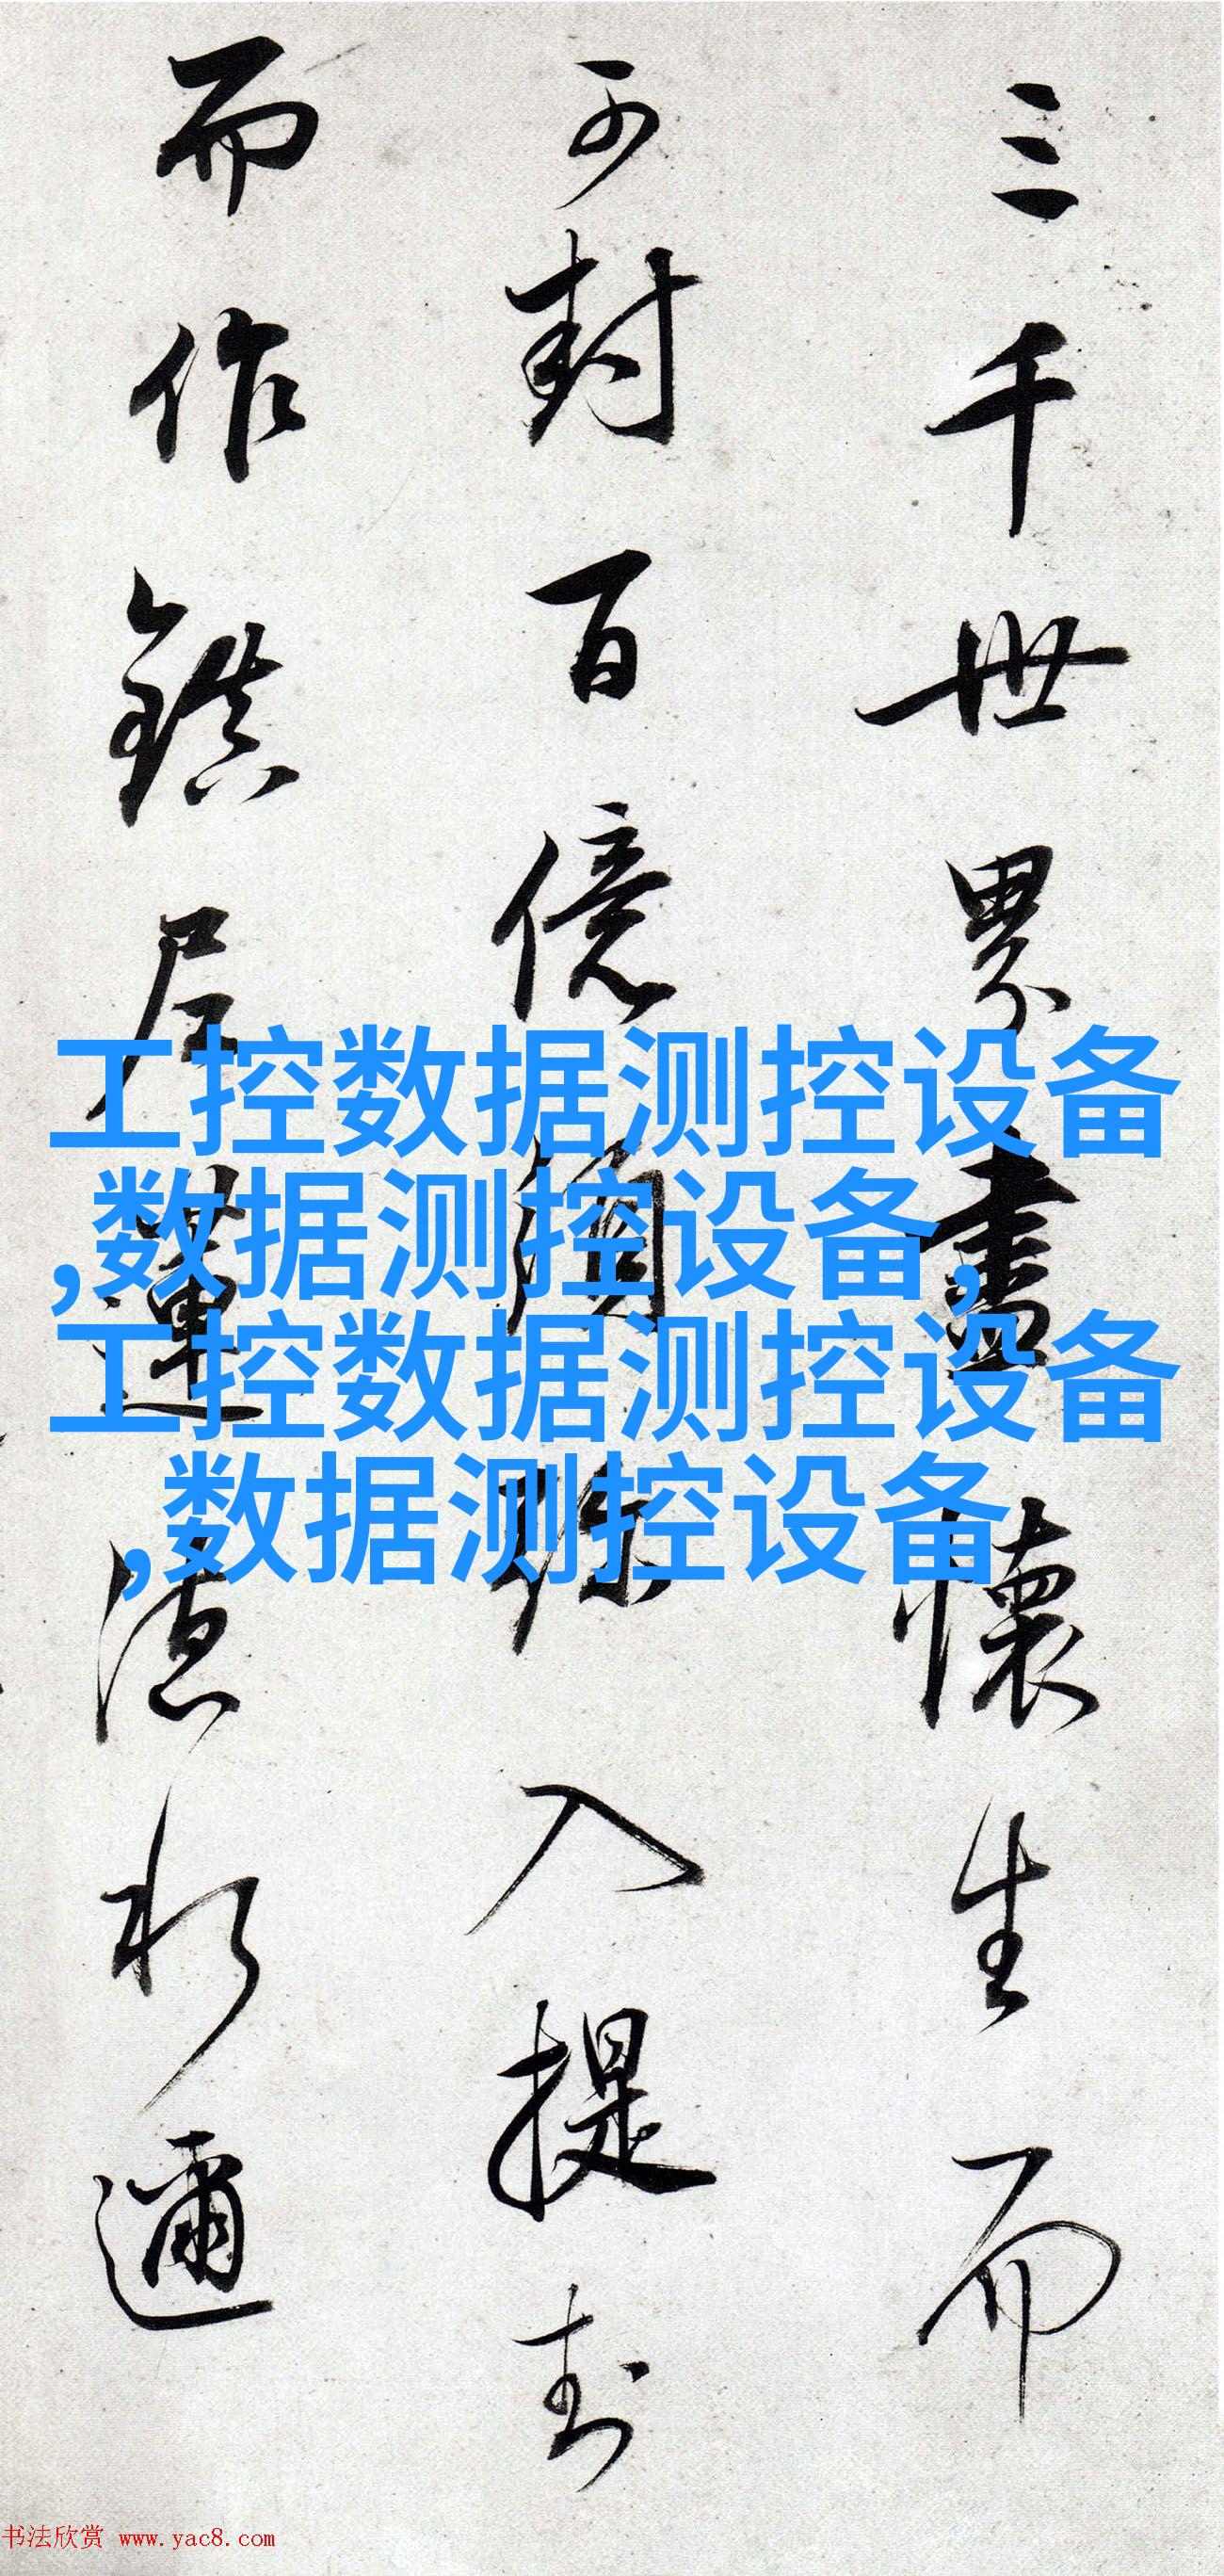 三千世界盡懷生而
可封百億須弥入提封
而作鎮尼蓮德水邇
工控数据测控设备
,数据测控设备,
工控数据测控设备
,数据测控设备
书法欣赏 www.yac8.com